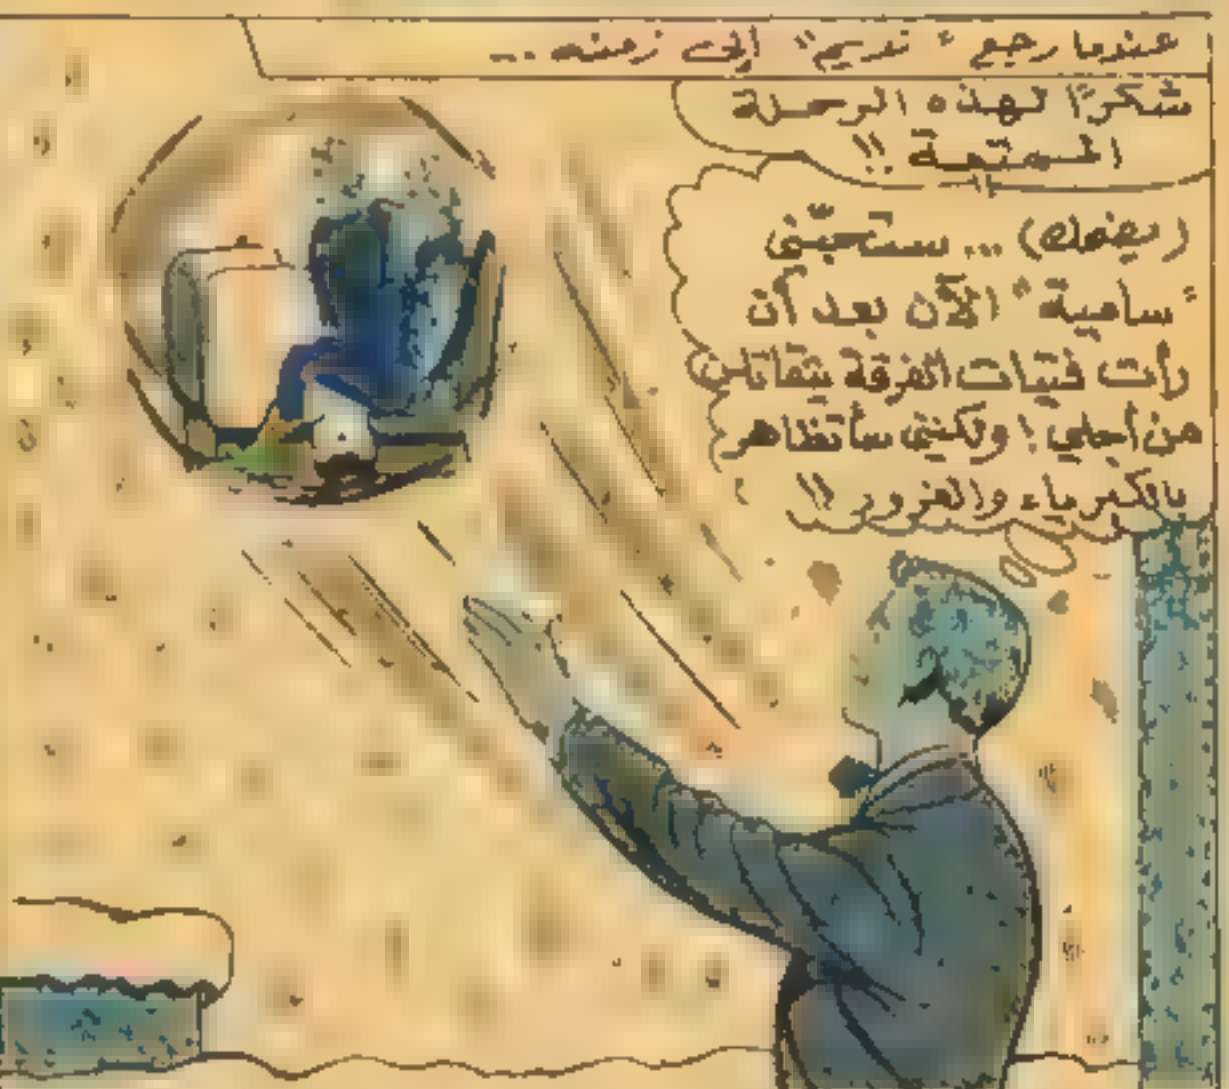 عندما رجع "نديم" إلى زمنه ..
شكرًا لهذه الرحلة
الممتعة !!
(يضحك) ... ستحبّني
"سامية" الآن بعد أن
رأت فتيات الفرقة يتقاتلن
من أجلي ! ولكنني سأتظاهر
بالكبرياء والغرور !!